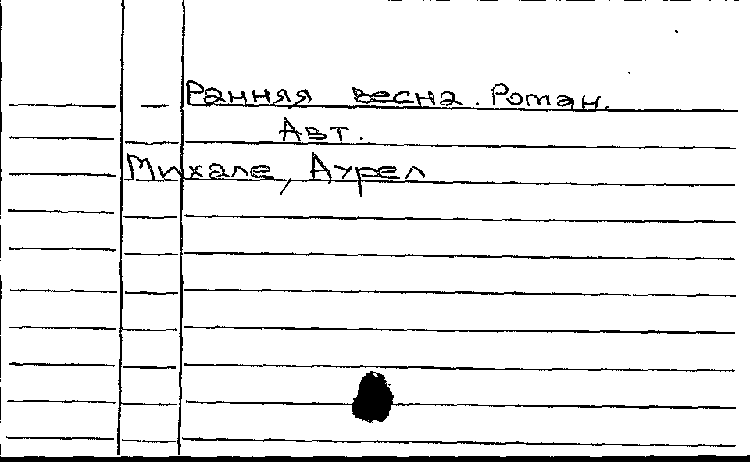 Ранняя весна. Роман.
Авт.
Михале, Аурел